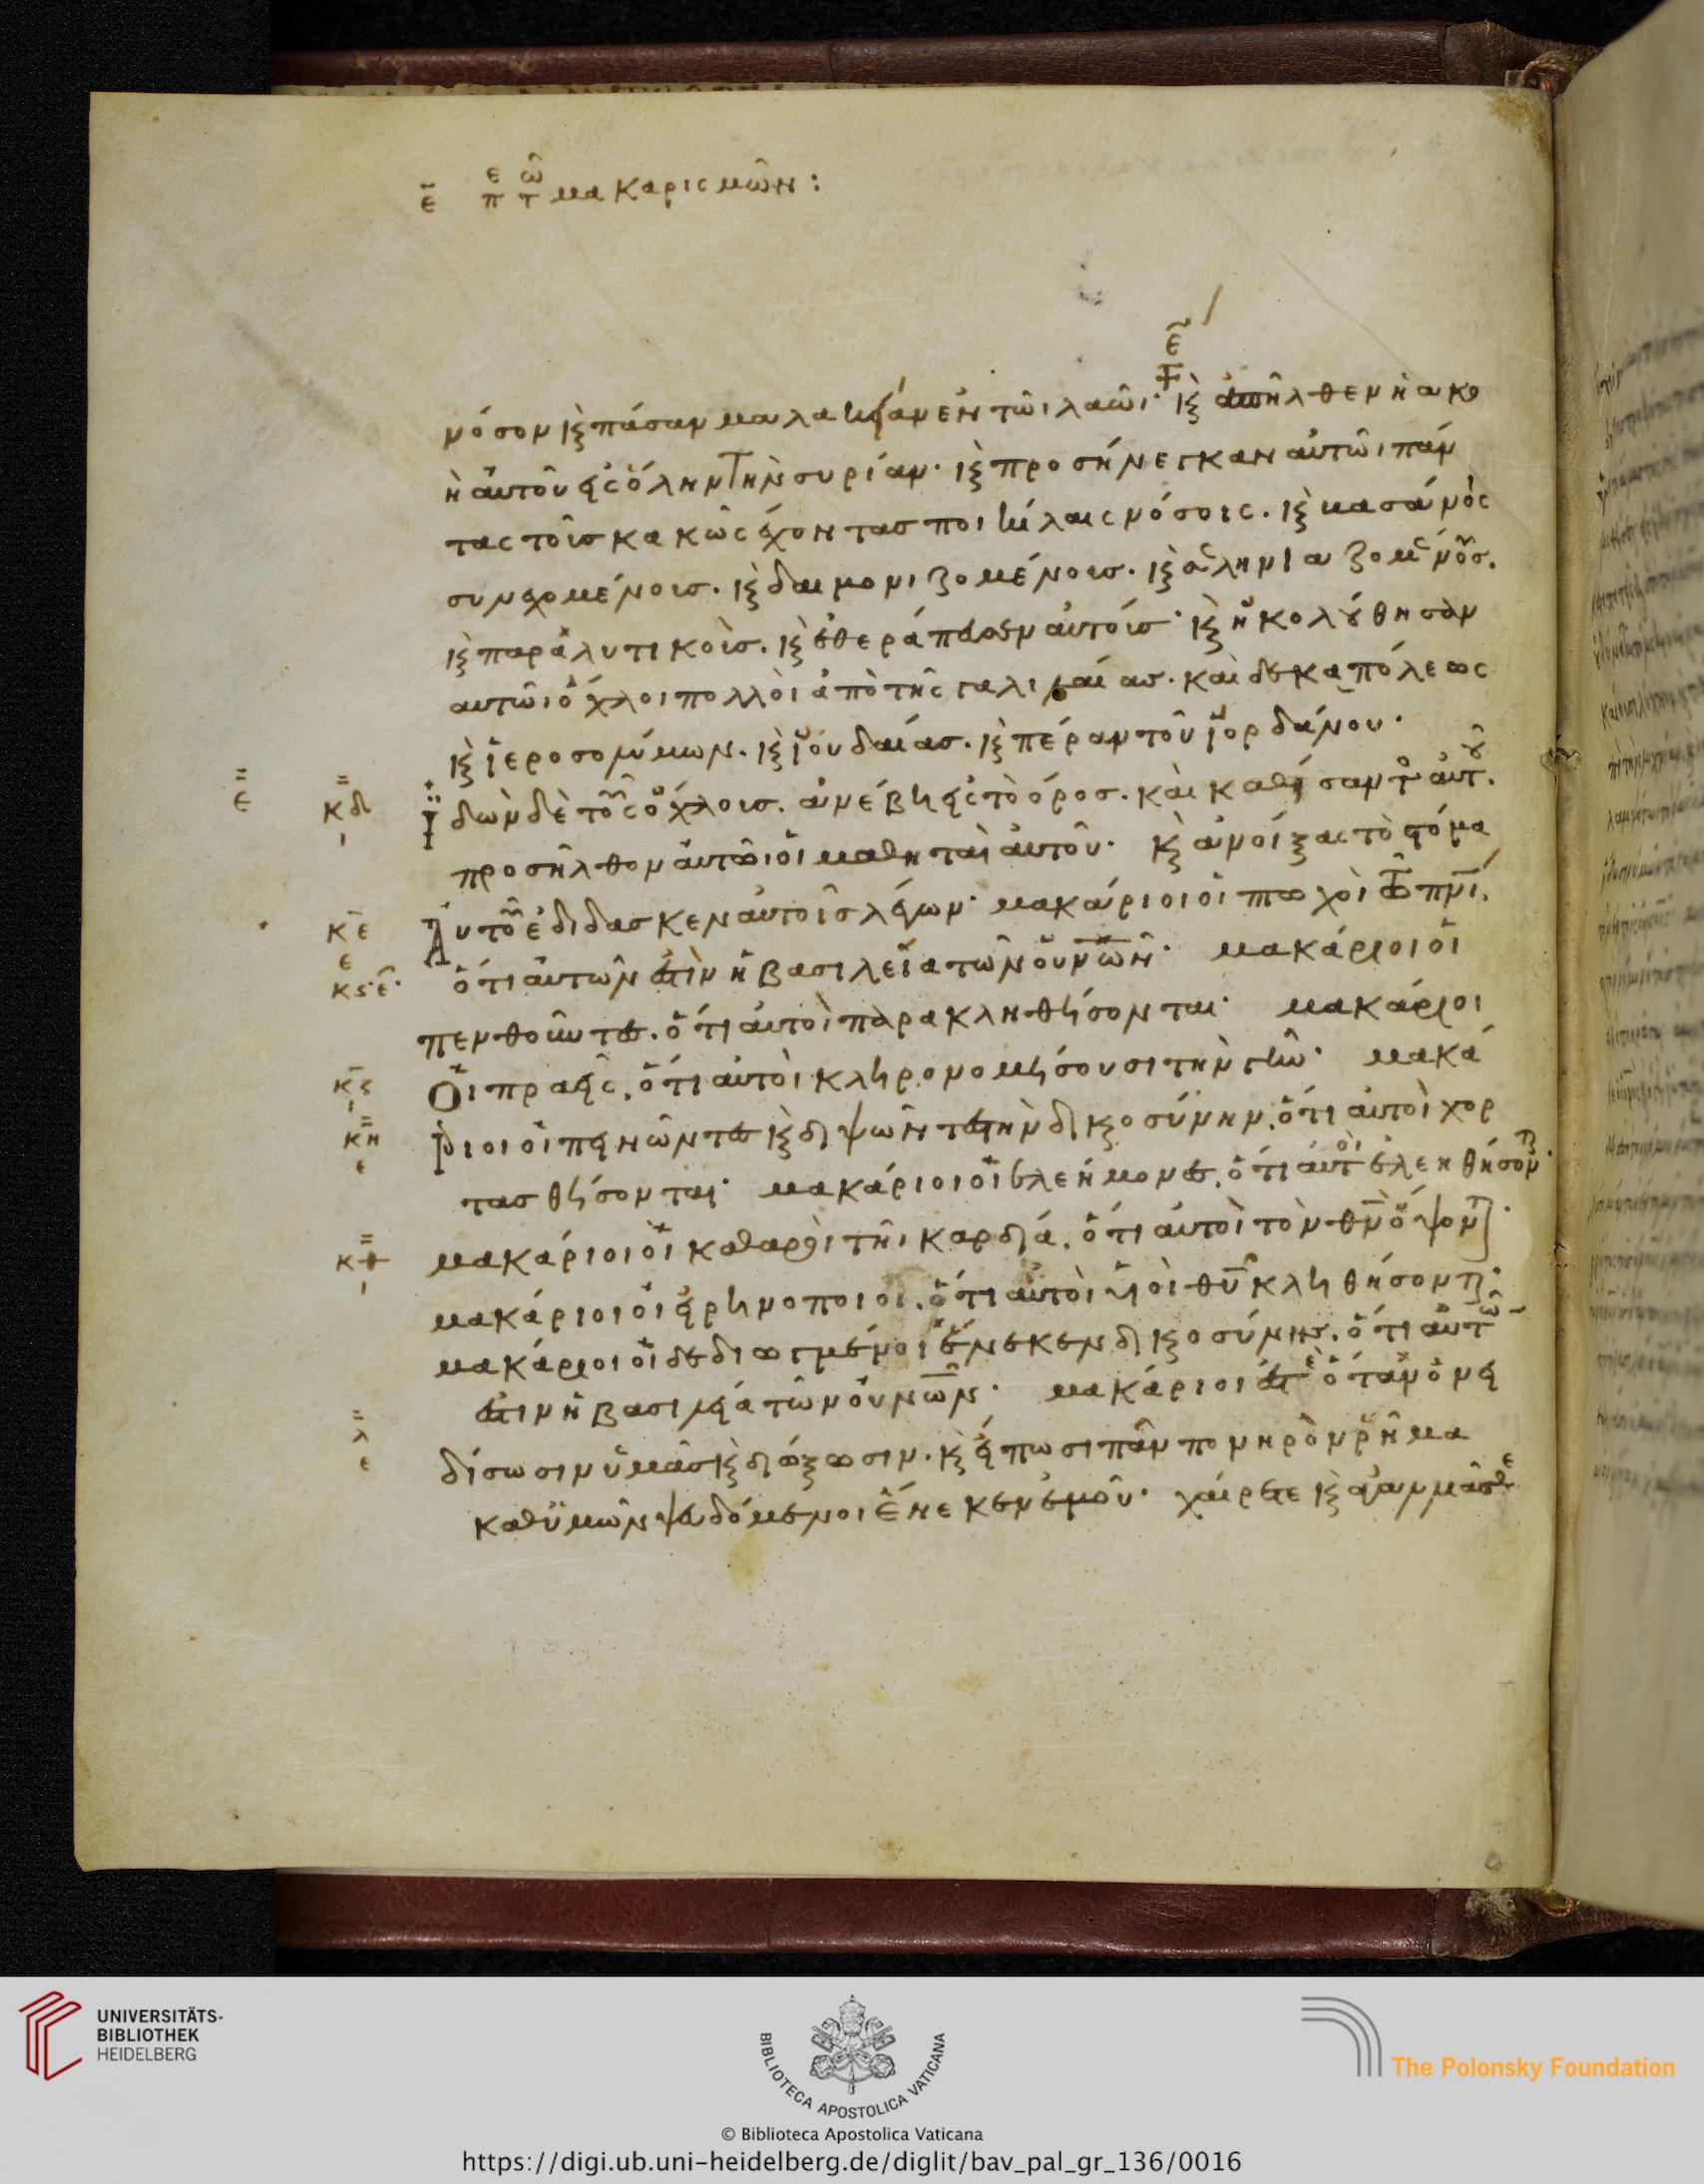 ε̅ πε τω̑ μακαρισμῶν:
ε̅
νόσον κ̀ πάσαν μαλακίαν ἐν τῶι λαῶι· κ̀ ἀπῆλθεν ἡ ακο
ὴ ἀυτοῦ εἰς ὅλην τὴν συρίαν· κ̀ προσήνεγκαν αὐτῶι πάν
τας τοὺσ κακῶς ἔχοντασ ποικίλαις νόσοις. κ̀ βασάνοις
συνεχομένουσ. κ̀ δαιμονιζομένουσ. κ̀ σεληνιαζομένους.
κ̀ παραλυτικοὺσ. κ̀ ἐθεράπευσεν αυτοὺσ· κ̀ ἠκολούθησαν
αυτῶι ὄχλοι πολλὸι ἀπὸ τῆς γαλιλαίασ. καὶ δεκαπόλεως
κ̀ ἱεροσολύμων. κ̀ ἰουδαίασ. κ̀ πέραν τοῦ ἰορδάνου·
ε̅ κδ ϊδὼν δὲ τοὺς ὄχλουσ. ἀνέβη εἰς τὸ όροσ. καὶ καθίσαντο αὐτοῦ.
προσῆλθον ἀυτῶι οἱ μαθηταὶ ἀυτοῦ· κ̀ ἀνοίξας τὸ στόμα
κε Αυτοῦ ἐδιδασκεν αὐτοὺσ λέγων· μακάριοι οἱ πτωχοὶ τῶ πνι.
κϛ ε ὅτι ἀυτῶν ἐστὶν ἡ βασιλεία τῶν οὐνῶν· μακάριοι οἱ
πενθοῦντεσ. ὅτι ἀυτοὶ παρακληθήσονται· μακάριοι
κζ Οἱ πραεῖς. ὅτι αὐτοὶ κληρονομήσουσι τὴν γῆν· μακά
κη ριοι οἱ πεινῶντεσ κ̀ διψῶντεσ τὴν δικαιοσύνην. ὅτι αὐτοὶ χορ
ε τασθήσονται· μακάριοι οἱ ἐλεήμονεσ. ὅτι ἀυτοὶ ἐλεηθήσονται·
κθ μακάριοι οἱ καθαροὶ τῆι καρδιά. ὅτι ἀυτοὶ τὸν θν ὄψονται·
μακάριοι οἱ εἰρηνοποιοι. ὅτι ἀυτοὶ υἱοὶ θυ κληθήσονται·
μακάριοι οἱ δεδιωγμένοι ἕνεκεν δικαιοσύνησ. ὅτι αὐτῶν
ἐστιν ἡ βασιλεία τῶν οὐνῶν· μακάριοι ἐστὲ ὅταν ὀνει
λ ε δίσωσιν ὑμᾶσ κ̀ διώξωσιν. κ̀ είπωσι πᾶν πονηρὸν ῥῆμα
καθ ὑμῶν ψευδόμενοι ἕνεκεν ἐμοῦ· χαίρετε κ̀ ἀγαλλιᾶσθε
UNIVERSITÄTS-
BIBLIOTHEK
HEIDELBERG
BIBLIOTECA APOSTOLICA VATICANA
The Polonsky Foundation
© Biblioteca Apostolica Vaticana
https://digi.ub.uni-heidelberg.de/diglit/bav_pal_gr_136/0016